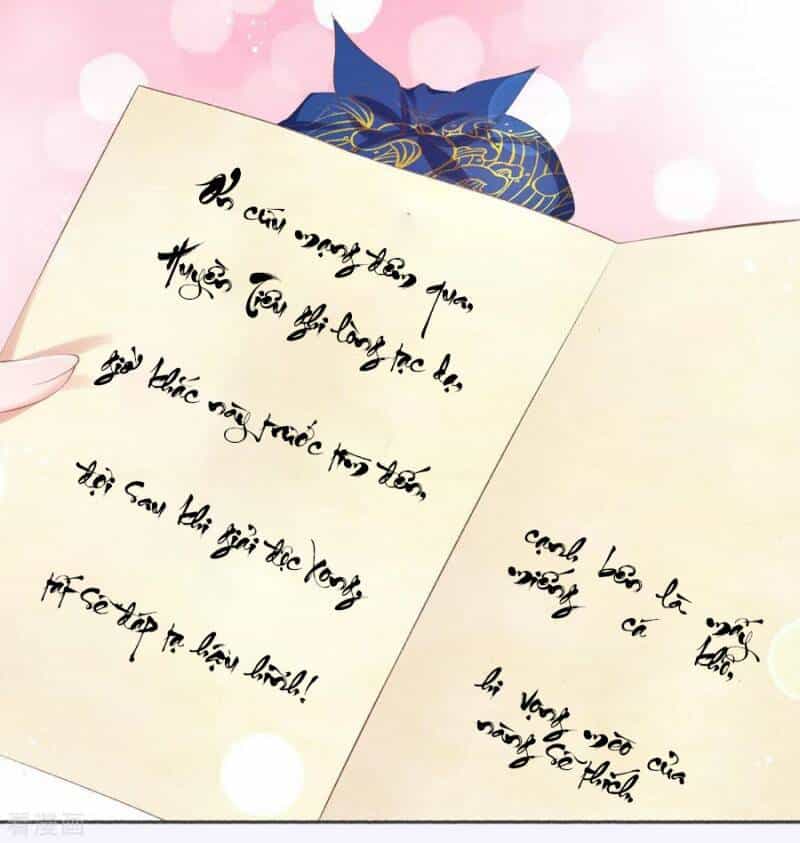 Ơn cứu mạng đêm qua,
Huyền Tiêu ghi lòng tạc dạ,
giờ khắc này trước tìm đến,
đợi sau khi giải độc xong,
tất sẽ đáp tạ hậu hĩnh!
cạnh bên là mấy
miếng cá khô,
hi vọng mèo của
nàng sẽ thích.
看漫画